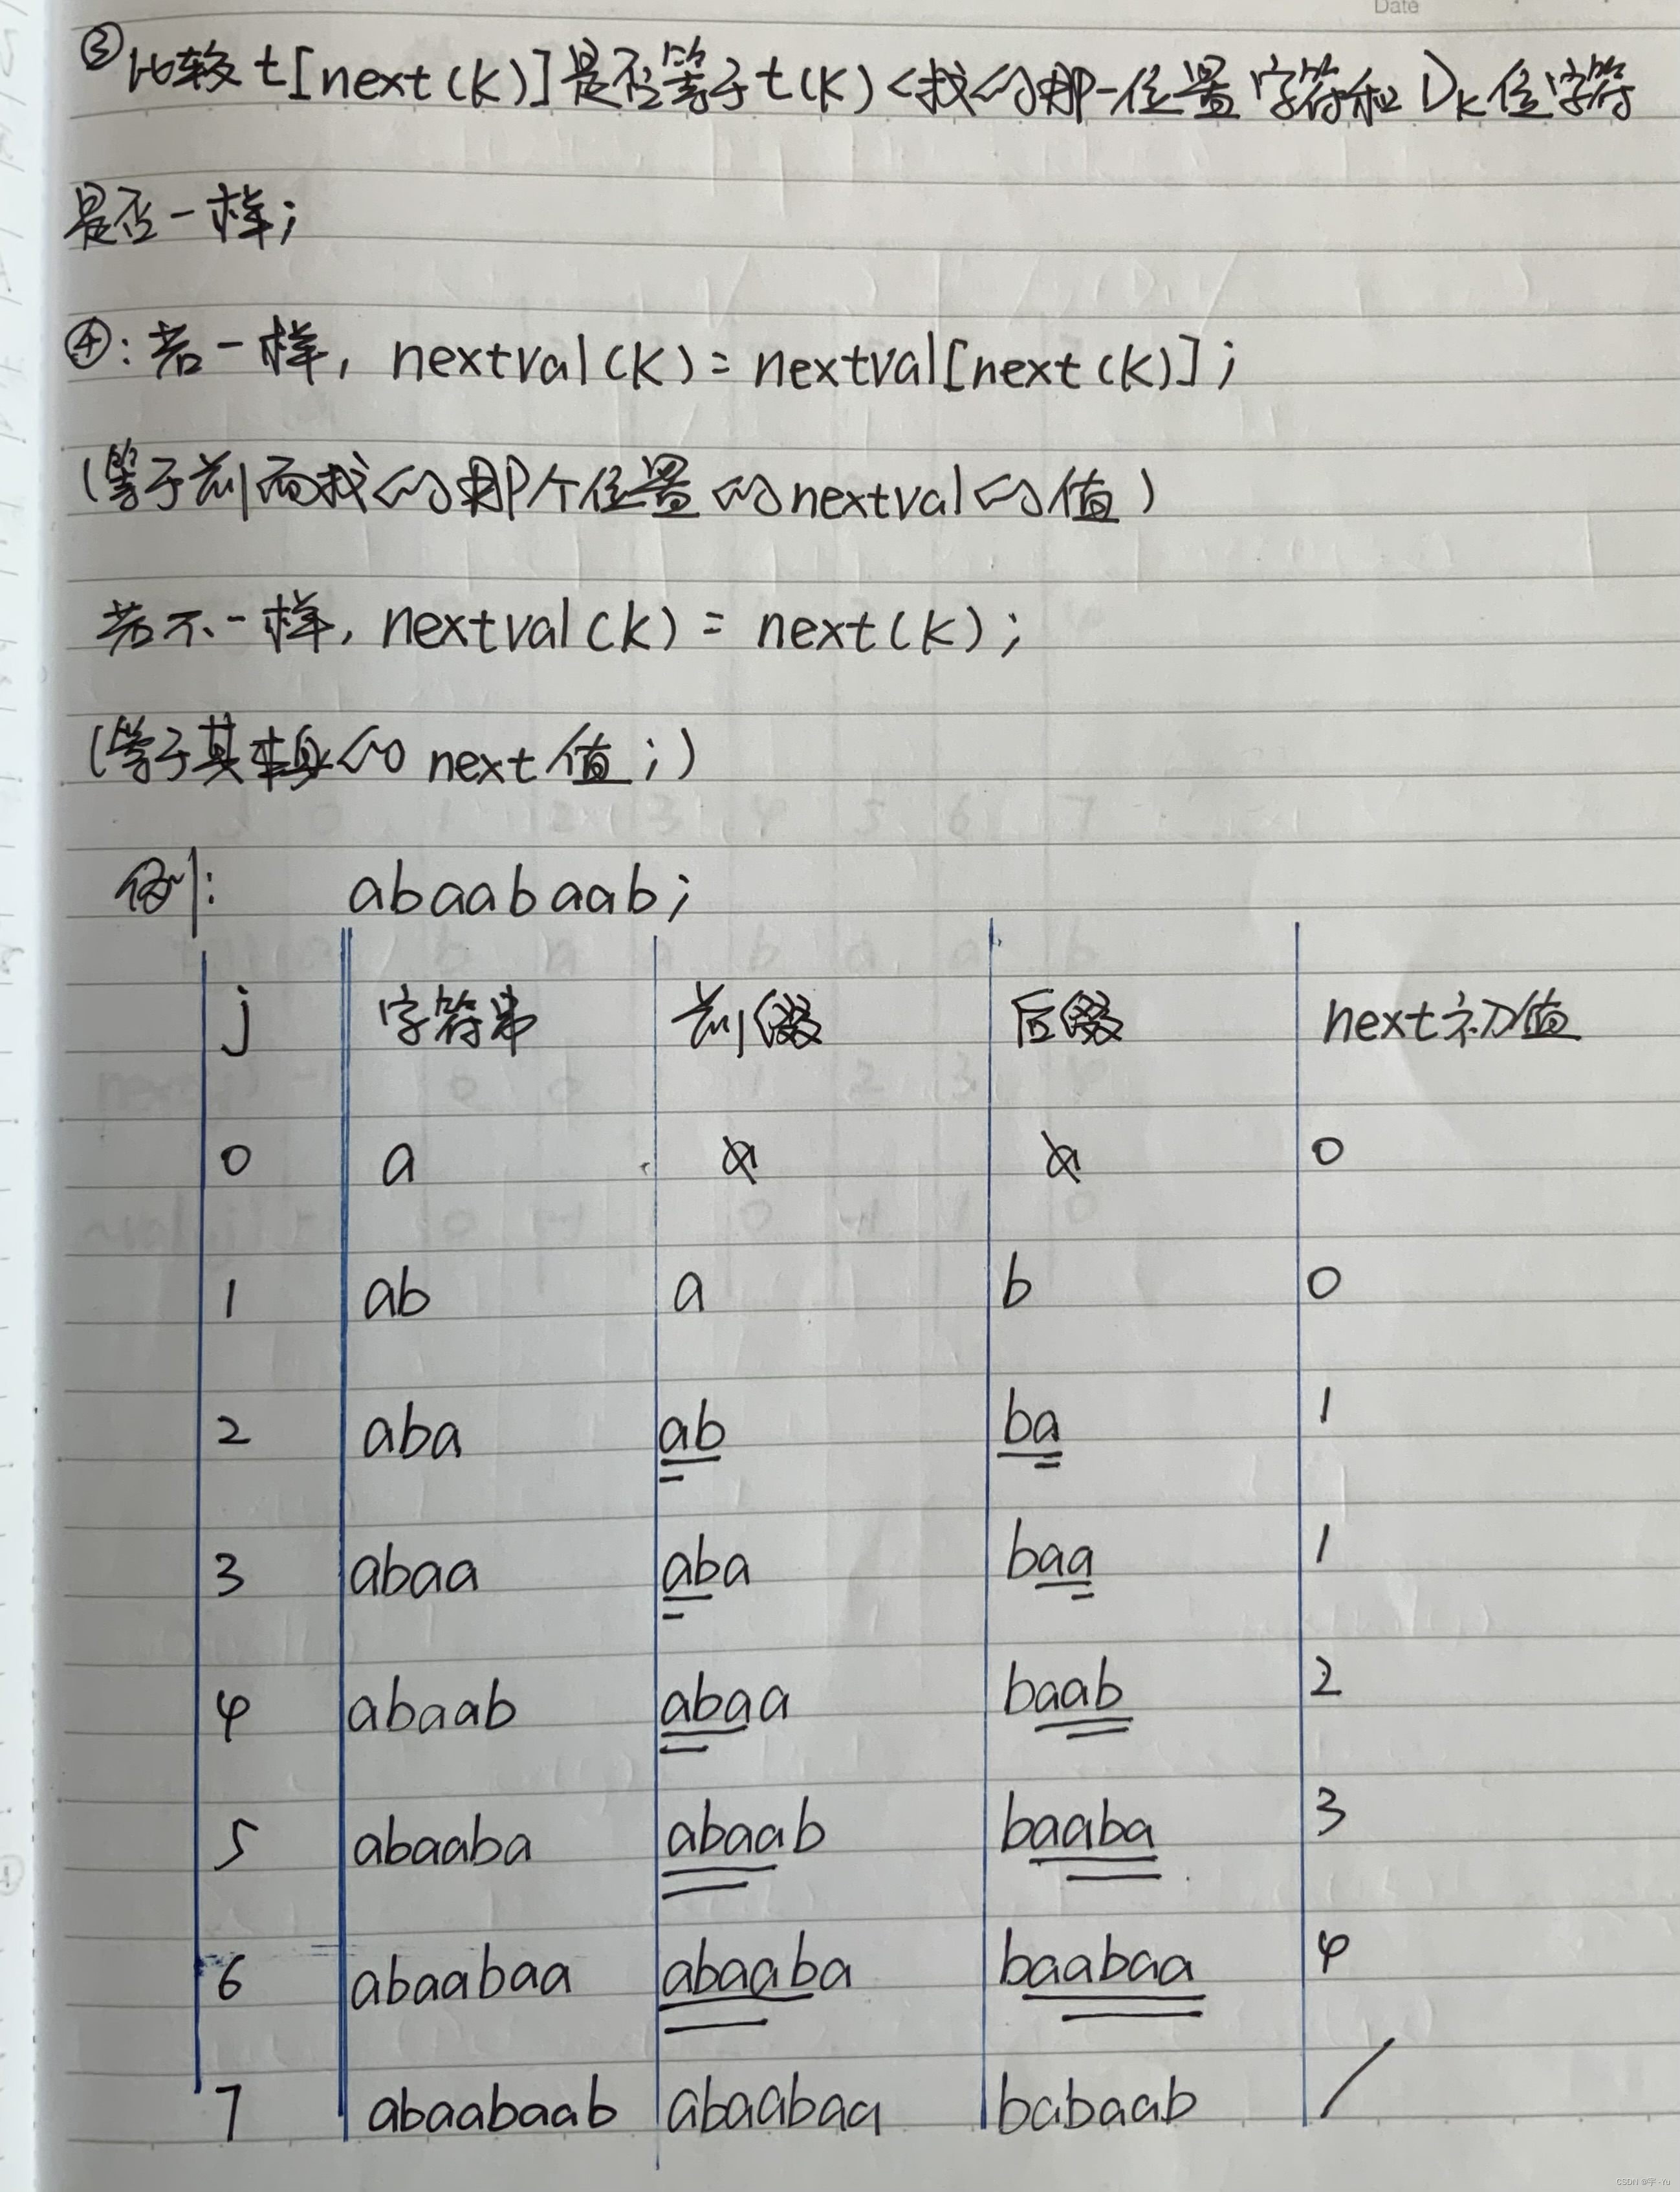 Date
③比较t[next(k)]是否等于t(k)<找的那一位置字符和Dk位字符
是否一样;
④:若一样, nextval(k)=nextval[next(k)];
(等于前面找的那个位置的nextval的值)
若不一样, nextval(k)=next(k);
(等于其本身的next值;)
例: abaabaab;
j 字符串 前缀 后缀 next初值
0 a 0
1 ab a b 0
2 aba ab ba 1
3 abaa aba baa 1
4 abaab abaa baab 2
5 abaaba abaab baaba 3
6 abaabaa abaaba baabaa 4
7 abaabaab abaabaa babaab /
CSDN @宇-Yu